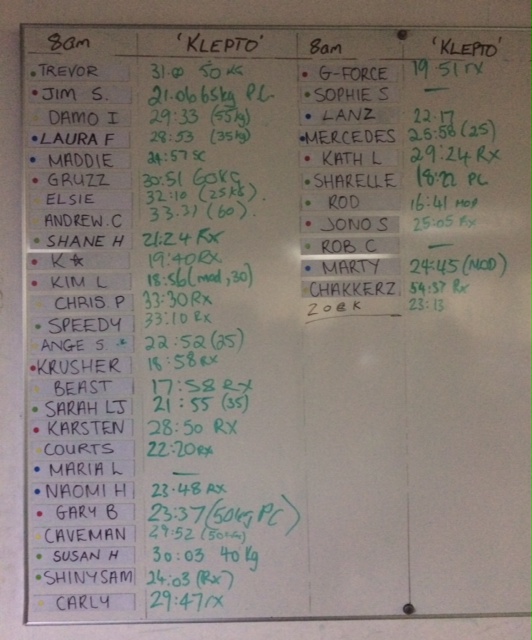 8am 'KLEPTO'
TREVOR 31.00 50 KG
JIM S. 21.06 65kg PC
DAMO I 29:33 (55kg)
LAURA F 28:53 (35kg)
MADDIE 24:57 SC
GRUZZ 30:51 60KG
ELSIE 32:10 (25kg).
ANDREW.C 33.31 (60).
SHANE H 21:24 Rx
K☆ 19:40 Rx
KIM L 18:56 (mod, 30)
CHRIS P 33:30 Rx
SPEEDY 33:10 Rx
ANGE S. 22:52 (35)
KRUSHER 18:58 RX
BEAST 17:58 RX
SARAH LJ 21:55 (35)
KARSTEN 28:50 RX
COURTS 22:20 RX
MARIA L —
NAOMI H 23.48 RX
GARY B 23:37 (50kg PC)
CAVEMAN 29:52 (50KG)
SUSAN H 30:03 40kg
SHINYSAM 24:03 (Rx)
CARLY 29:47 rx
8am 'KLEPTO'
G-FORCE 19:51 rx
SOPHIE S —
LANZ 22.17
MERCEDES 26:58 (25)
KATH L 29:24 Rx
SHARELLE PC
ROD 16:41 MOD
JONO S 25:05 Rx
ROB C —
MARTY 24:45 (MOD)
CHAKKERZ 54:37 Rx
ZOE K 23:13